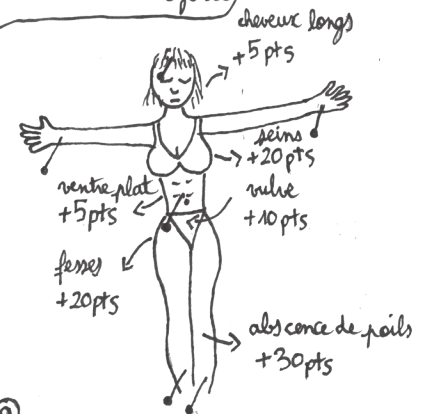 cheveux longs
+5pts
seins
+20pts
ventre plat
+5pts
vulve
+10pts
fesses
+20pts
abscence de poils
+30pts